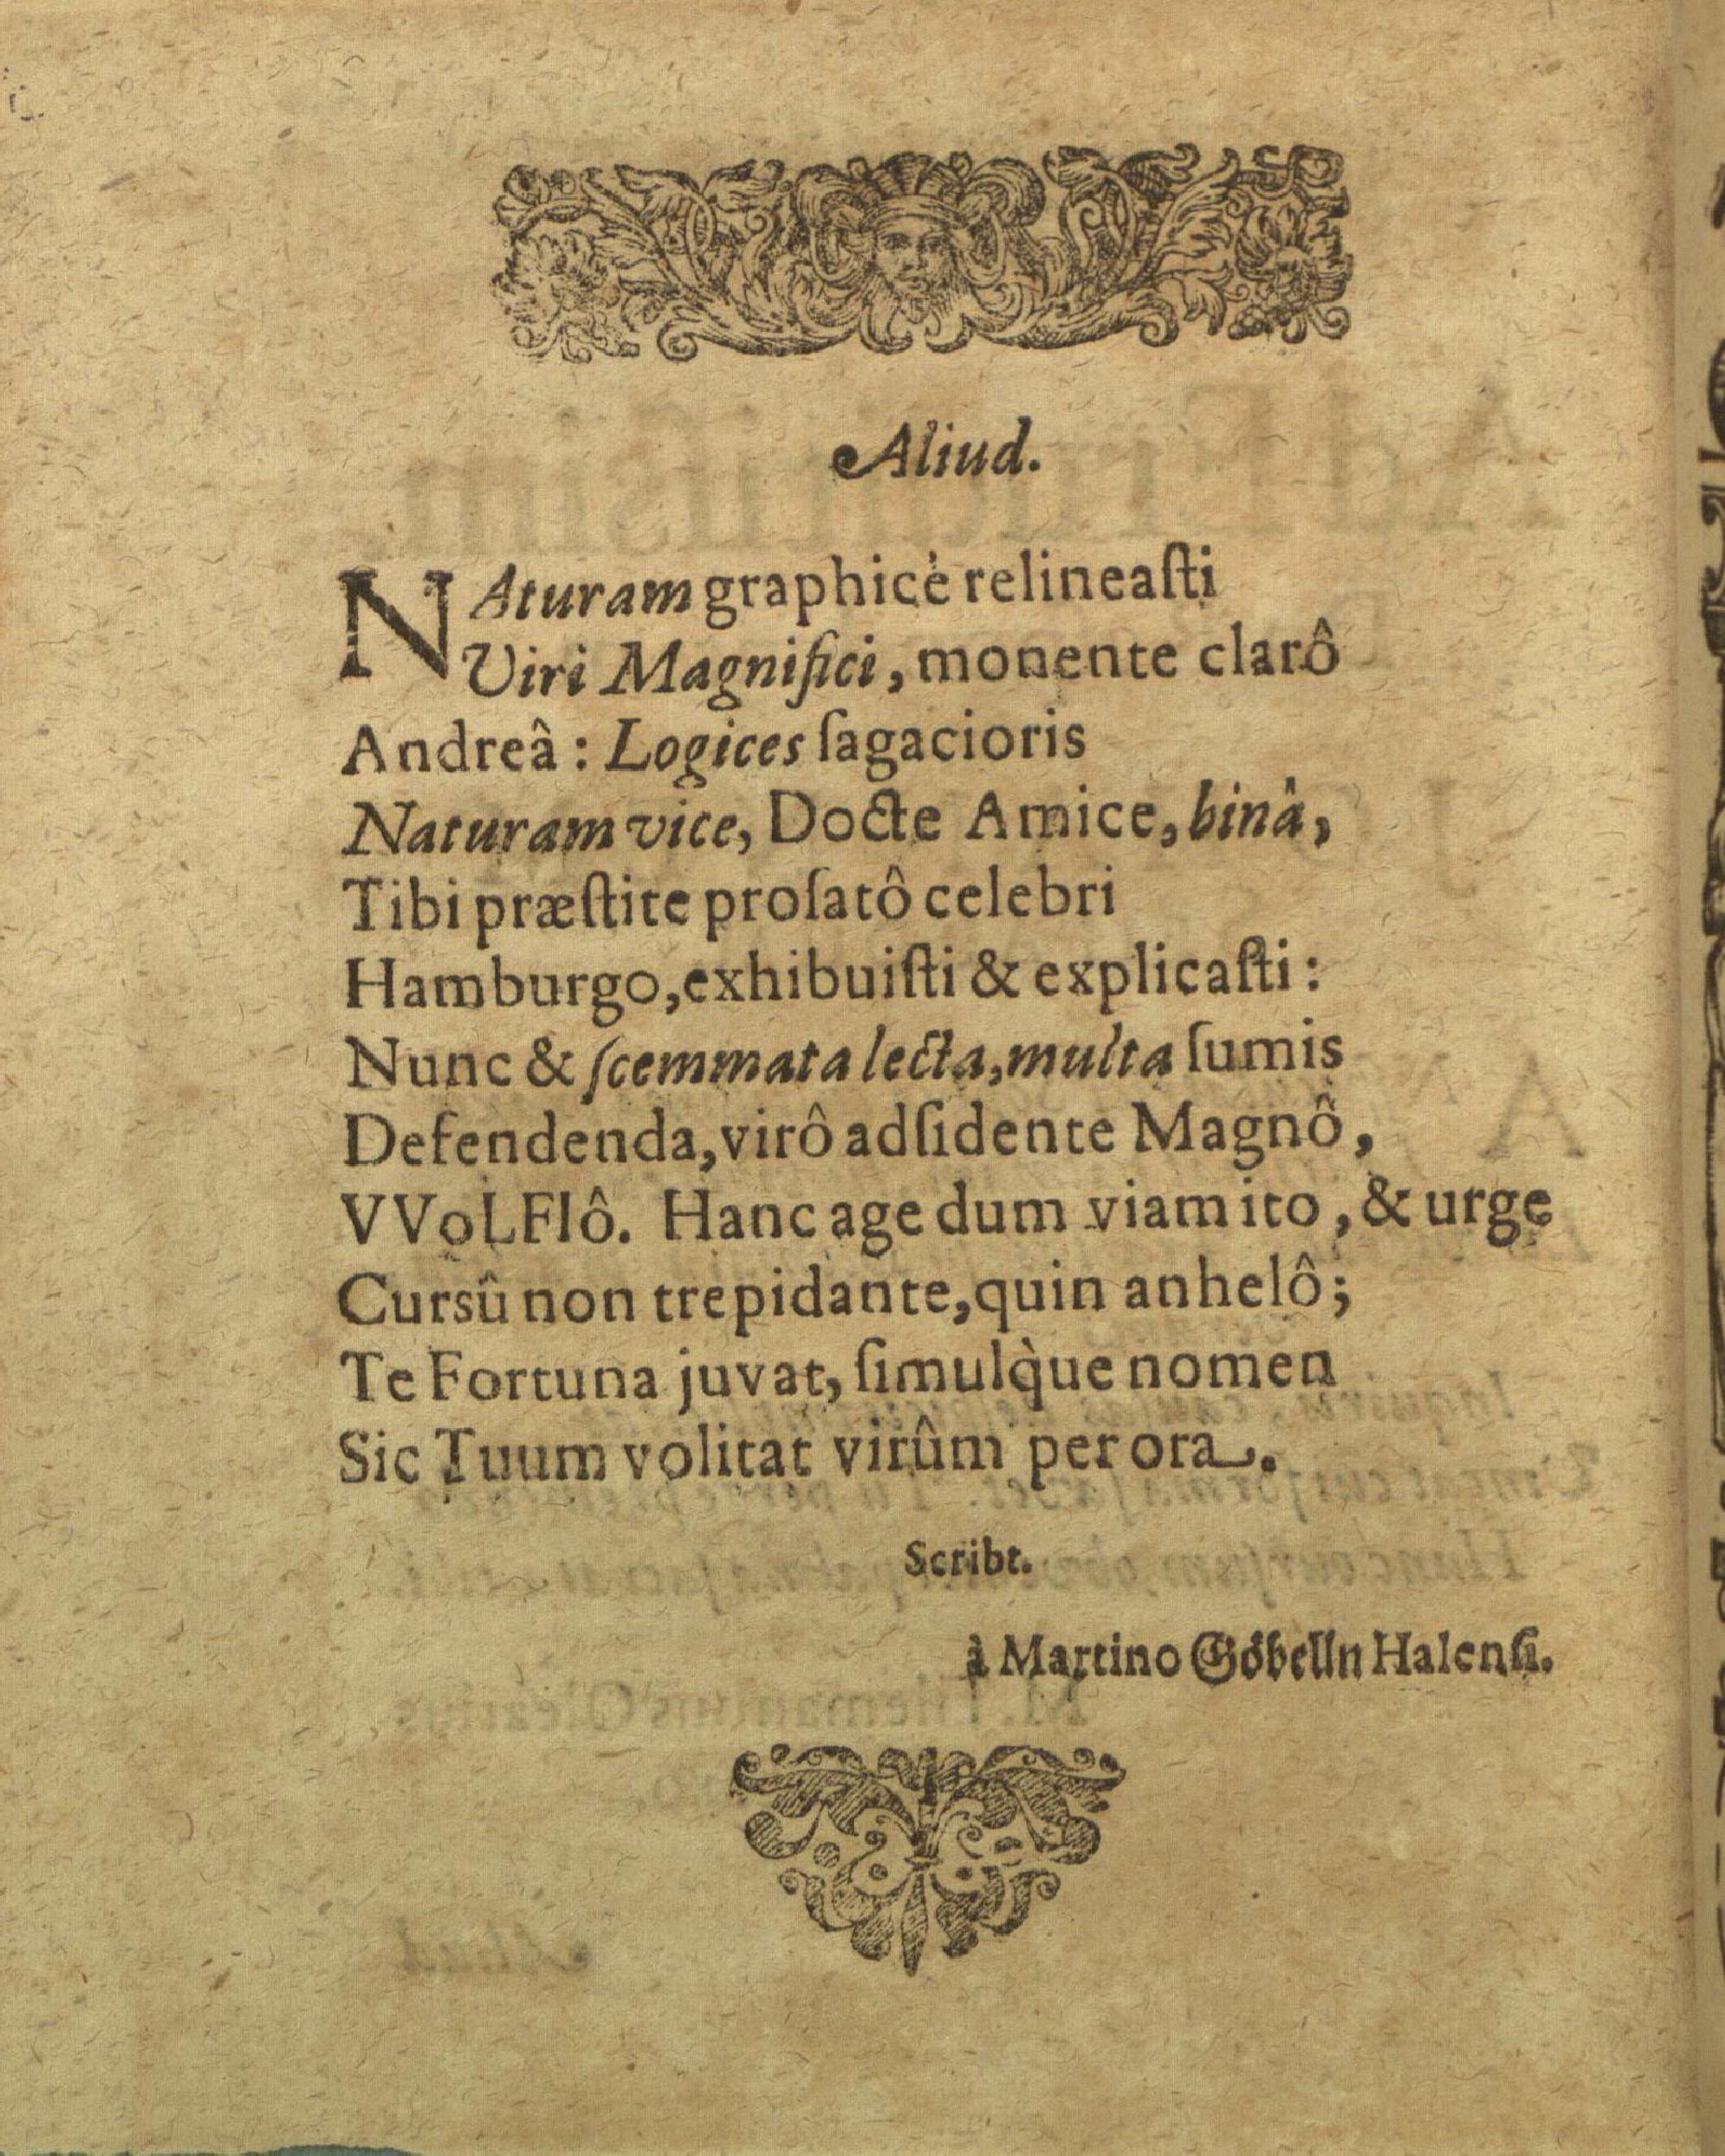 Aliud.
NAturam graphicè relineaſti
Viri Magnifici, monente clarô
Andreâ: Logices ſagacioris
Naturam vice, Docte Amice, binâ,
Tibi præſtite proſatô celebri
Hamburgo, exhibuiſti & explicaſti:
Nunc & ſcemmata lecta, multa ſumis
Defendenda, virô adſidente Magnô,
VVoLFIô. Hanc age dum viam ito, & urge
Cursû non trepidante, quin anhelô;
Te Fortuna juvat, ſimulq̀ue nomen
Sic Tuum volitat virûm per ora.
Scribt.
à Martino Göbelln Halenſi.